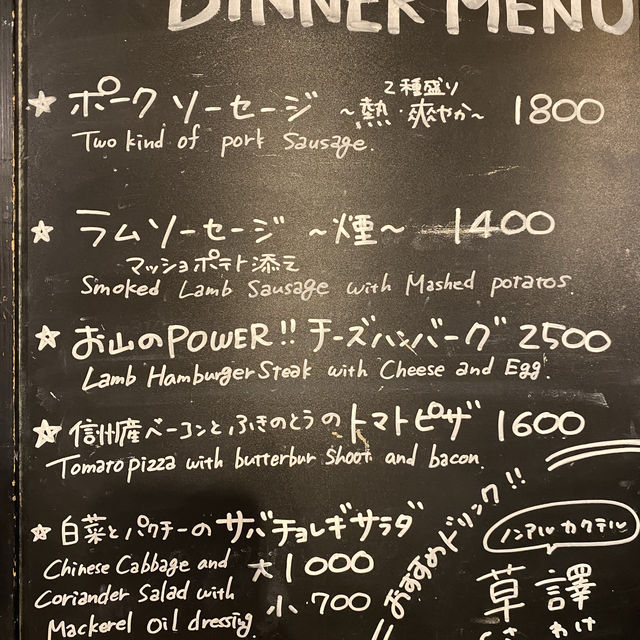 DINNER MENU
2種盛り
☆ ポーク ソーセージ ~熱・爽やか~ 1800
Two kind of pork Sausage.
☆ ラムソーセージ ~燻~ 1400
マッシュポテト添え
Smoked Lamb Sausage with Mashed potatos.
☆ お山のPOWER!! チーズハンバーグ 2500
Lamb Hamburger Steak with Cheese and Egg.
☆ 信州産ベーコンとふきのとうのトマトピザ 1600
Tomato pizza with butterbur Shoot and bacon.
☆ 白菜とパクチーのサバチョレギサラダ
Chinese Cabbage and 大 1000
Coriander Salad with 小 700
Mackerel Oil dressing.
おすすめドリンク!!
ノンアルカクテル
草譯